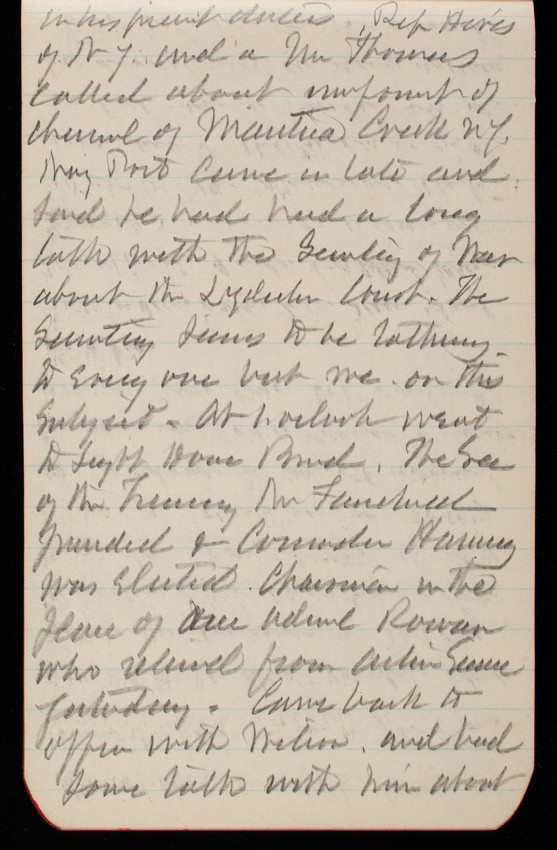 in his present duties. Rep Hires
of N J. and a Mr Thomas
called about improvmt of
channel of Mantua Creek NJ.
Maj Post came in late and
said he had had a long
talk with the Secretary of War
about the Court. The
Secretary seems to be talking
to every one but me on this
subject. At 1 oclock went
to Light House Board. The Sec
of the Treasury Mr Fairchild
presided & Comodor Harmony
was elected Chairman in the
place of Admiral Rowan
who retired from active Service
yesterday. Came back to
office with Wilson. and had
some talk with him about